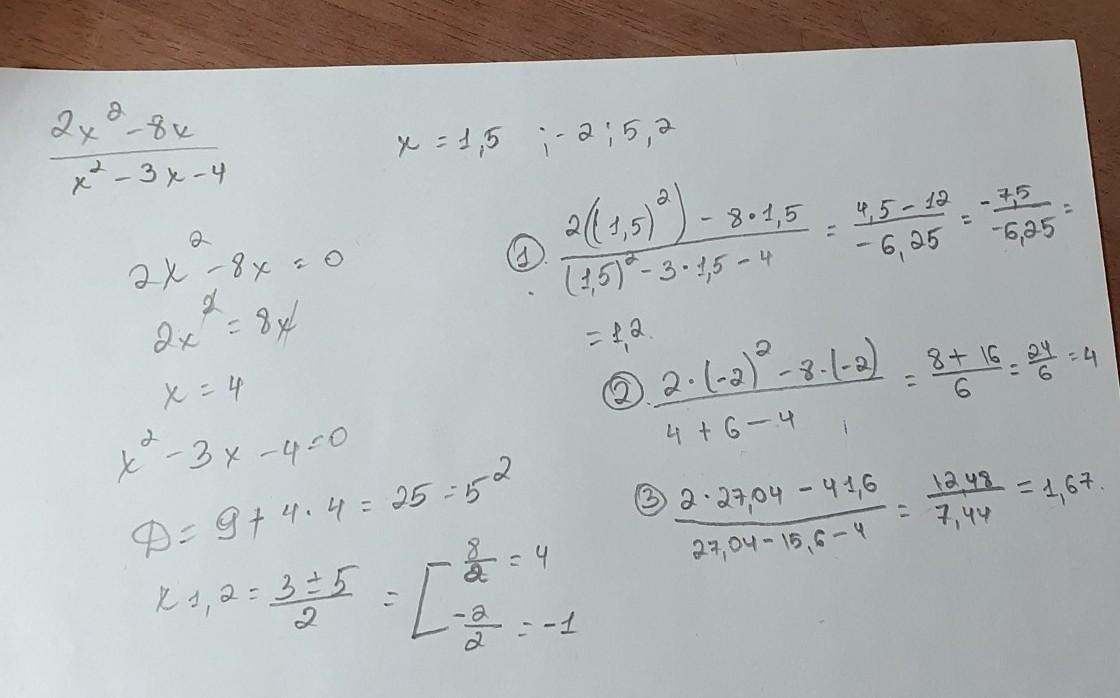 (2x² - 8x)/(x² - 3x - 4)
x = 1,5 ; -2 ; 5,2
2x² - 8x = 0
2x² = 8x
x = 4
x² - 3x - 4 = 0
D = 9 + 4·4 = 25 = 5²
x 1,2 = (3 ± 5)/2 = [ 8/2 = 4
-2/2 = -1
① (2((1,5)²) - 8·1,5)/((1,5)² - 3·1,5 - 4) = (4,5 - 12)/(-6,25) = (-7,5)/(-6,25) =
= 1,2.
② (2·(-2)² - 8·(-2))/(4 + 6 - 4) = (8 + 16)/6 = 24/6 = 4
③ (2·27,04 - 41,6)/(27,04 - 15,6 - 4) = 12,48/7,44 = 1,67.